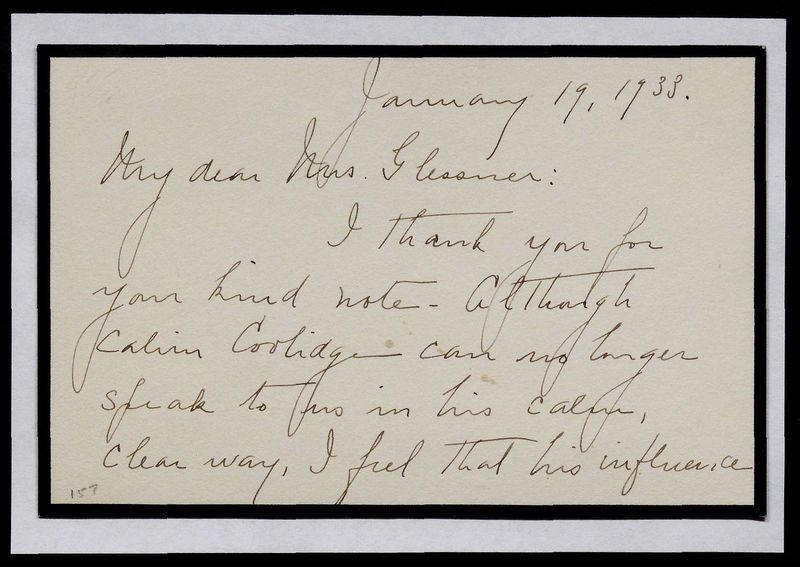 January 19, 1933.
My dear Mrs. Glessner:
I thank you for
your kind note - Although
Calvin Coolidge can no longer
speak to us in his calm,
clear way, I feel that his influence
157